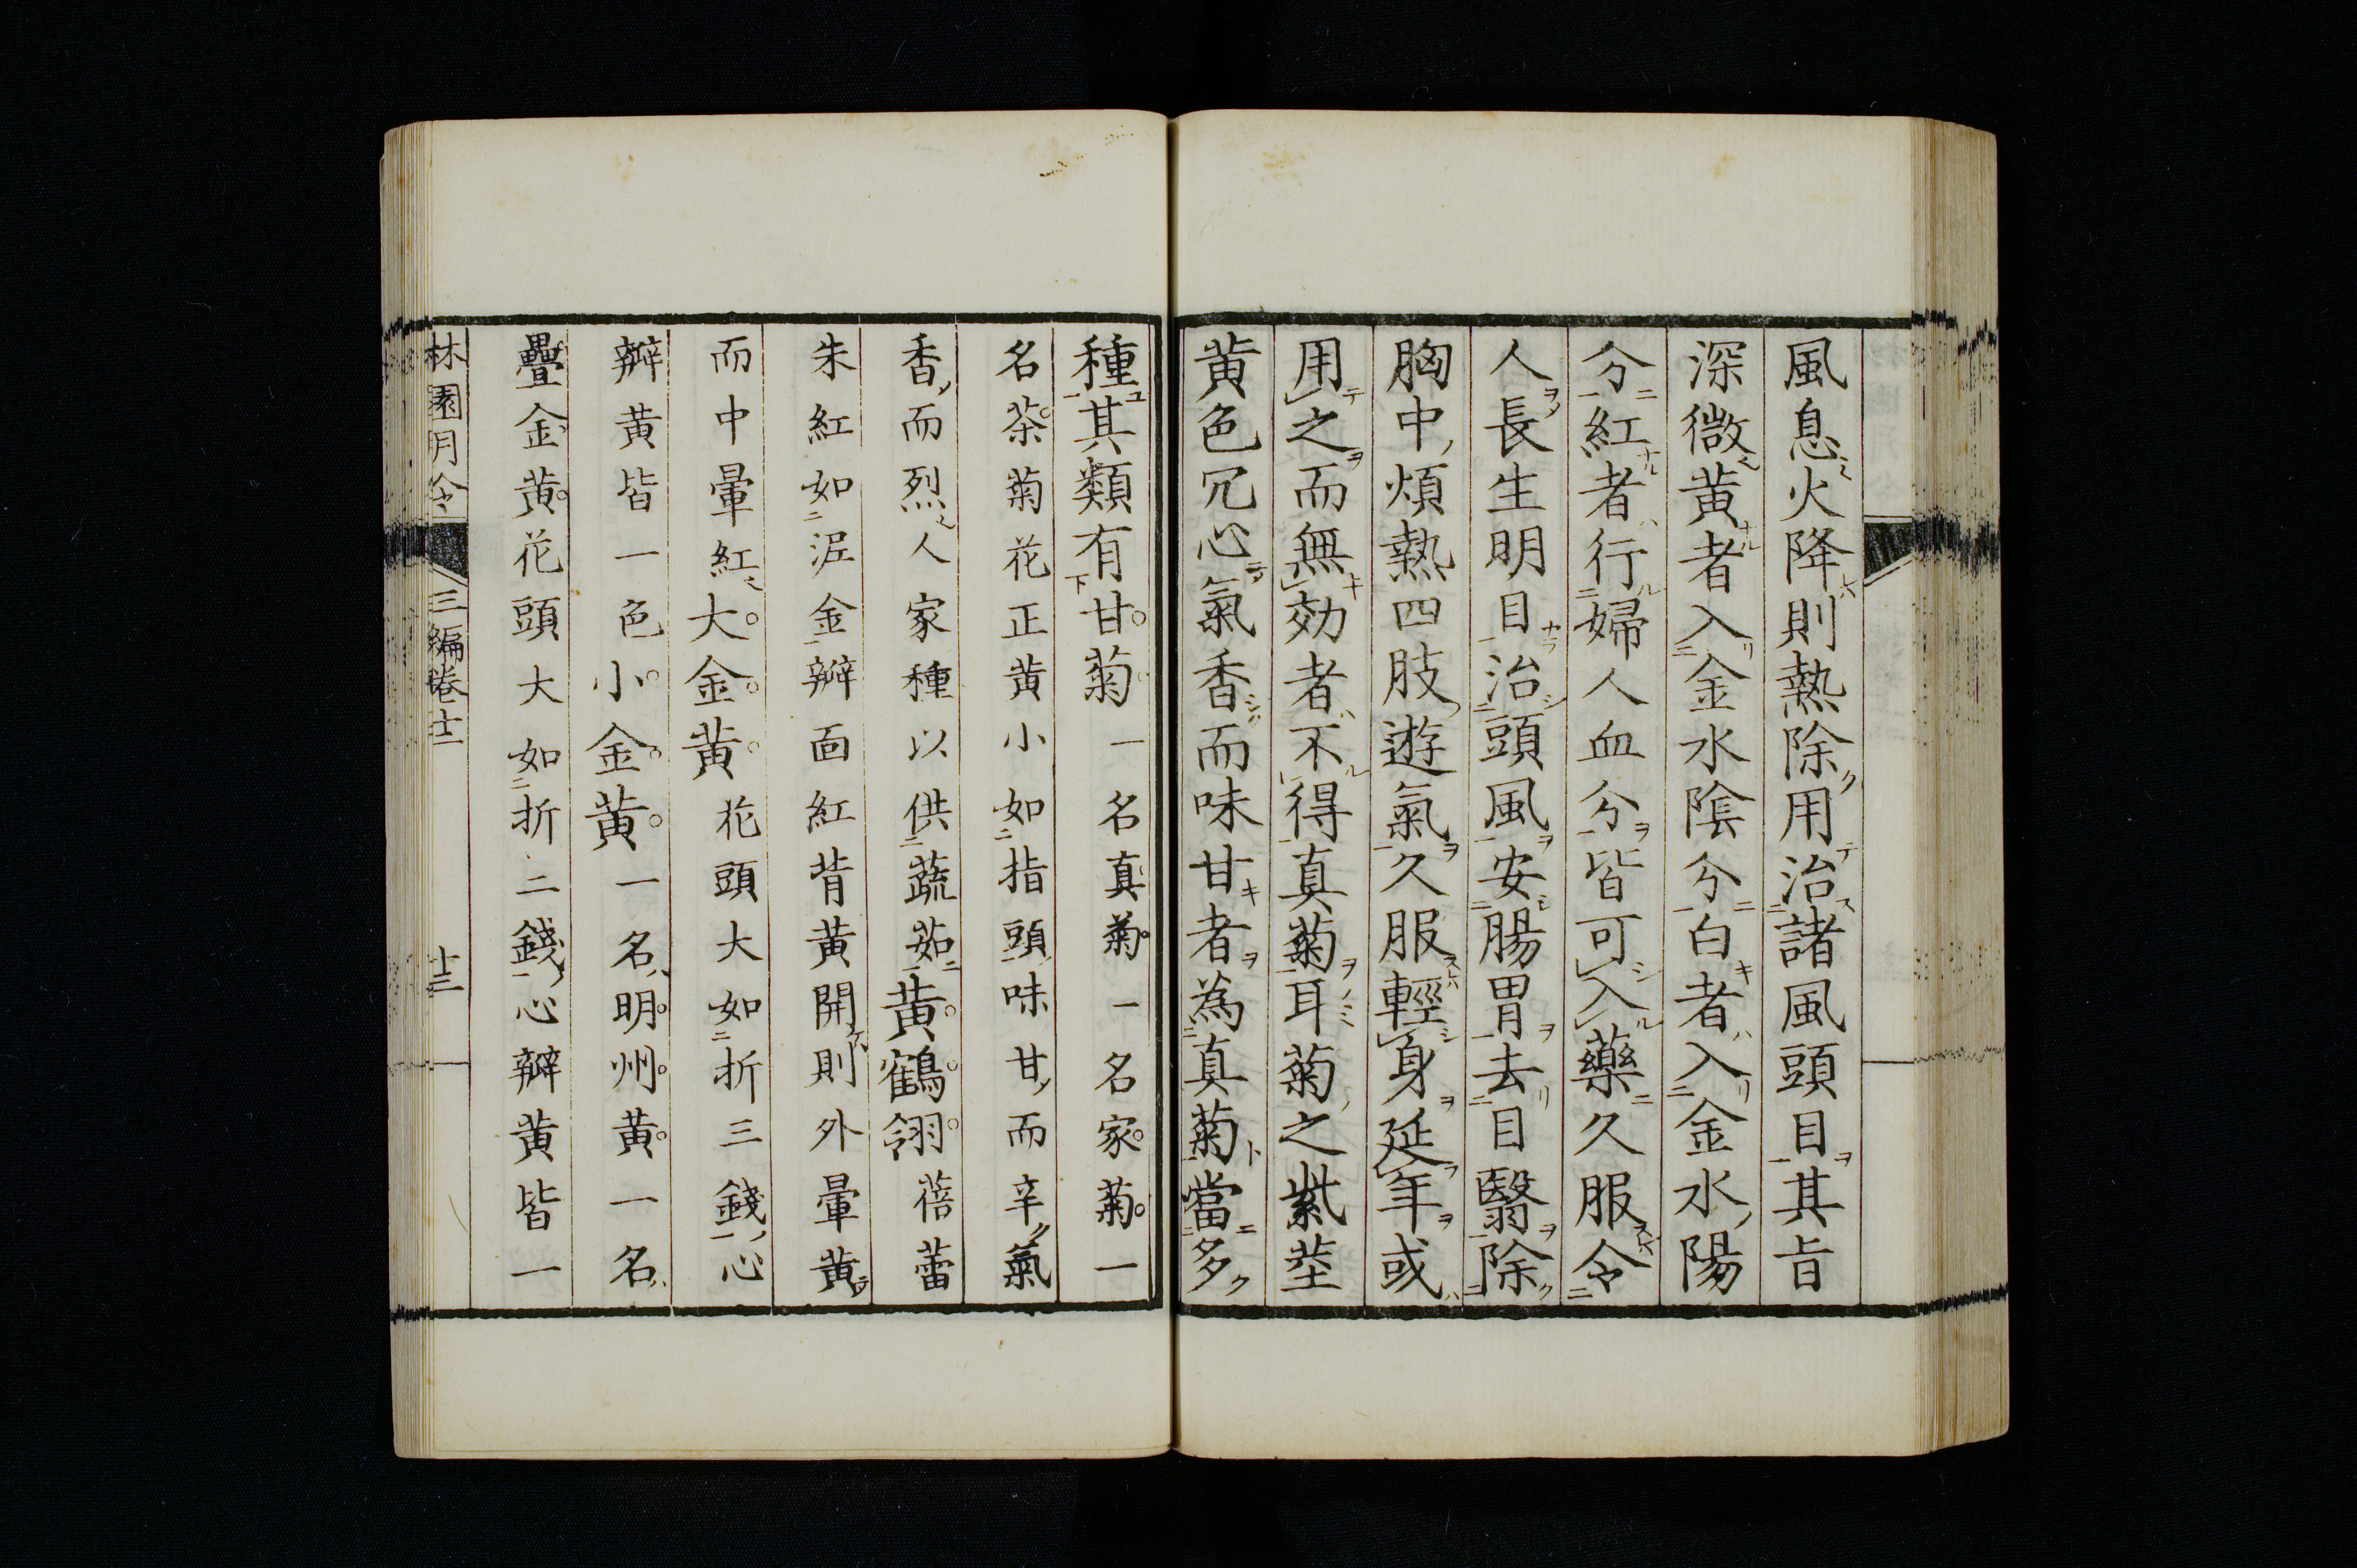 風息火降則熱除用治諸風頭目其旨
深微黄者入金水陰分白者入金水陽
分紅者行婦人血分皆可入藥久服令
人長生明目治頭風安腸胃去目翳除
胸中煩熱四肢遊氣久服輕身延年或
用之而無効者不得真菊耳菊之紫莖
黄色冗心氣香而味甘者為真菊當多
種其類有甘菊一名真菊一名家菊一
名茶菊花正黄小如指頭味甘而辛氣
香而烈人家種以供蔬茹黄鶴翎蓓蕾
朱紅如泥金瓣面紅背黄開則外暈黄
而中暈紅大金黄花頭大如折三錢心
瓣黄皆一色小金黄一名明州黄一名
疊金黄花頭大如折二錢心瓣黄皆一
林園月令 三編卷十二 十三